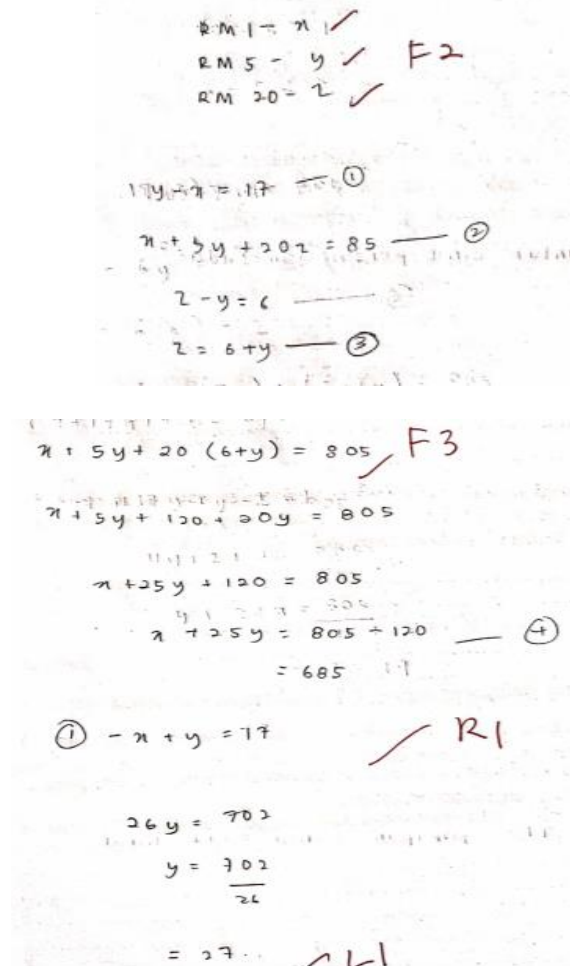 RM 1 - x
RM 5 - y F2
RM 20 - z
y - x = 17 — ①
x + 5y + 20z = 85 — ②
z - y = 6
z = 6 + y — ③
x + 5y + 20 (6+y) = 805 F3
x + 5y + 120 + 20y = 805
x + 25y + 120 = 805
x + 25y = 805 - 120 — ④
= 685
① - x + y = 17 R1
26y = 702
y = 702
26
= 27